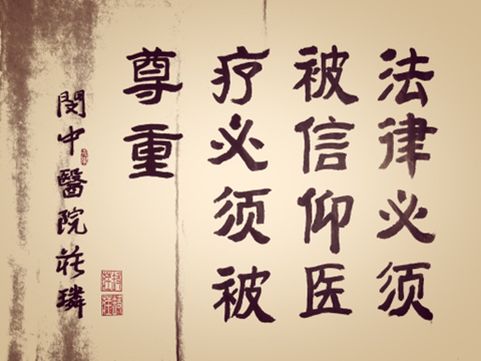 法律必须
被信仰医
疗必须被
尊重
閔中醫院莊璘